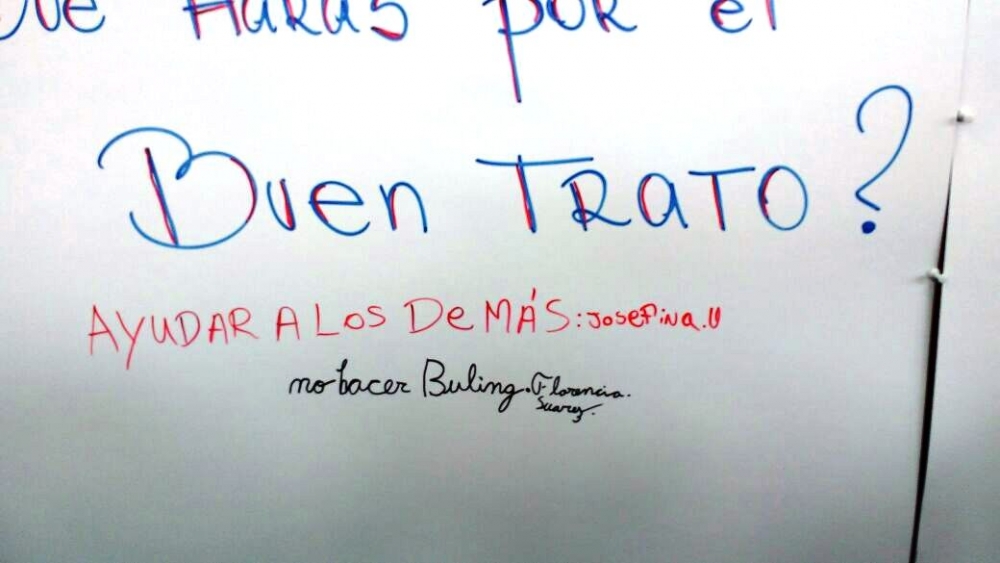 Que Harás por el
Buen TRaTO?
AYUDAR A LOS DeMÁS: JOSEFiNa.U
no hacer Buling. Florencia.
Suarez.